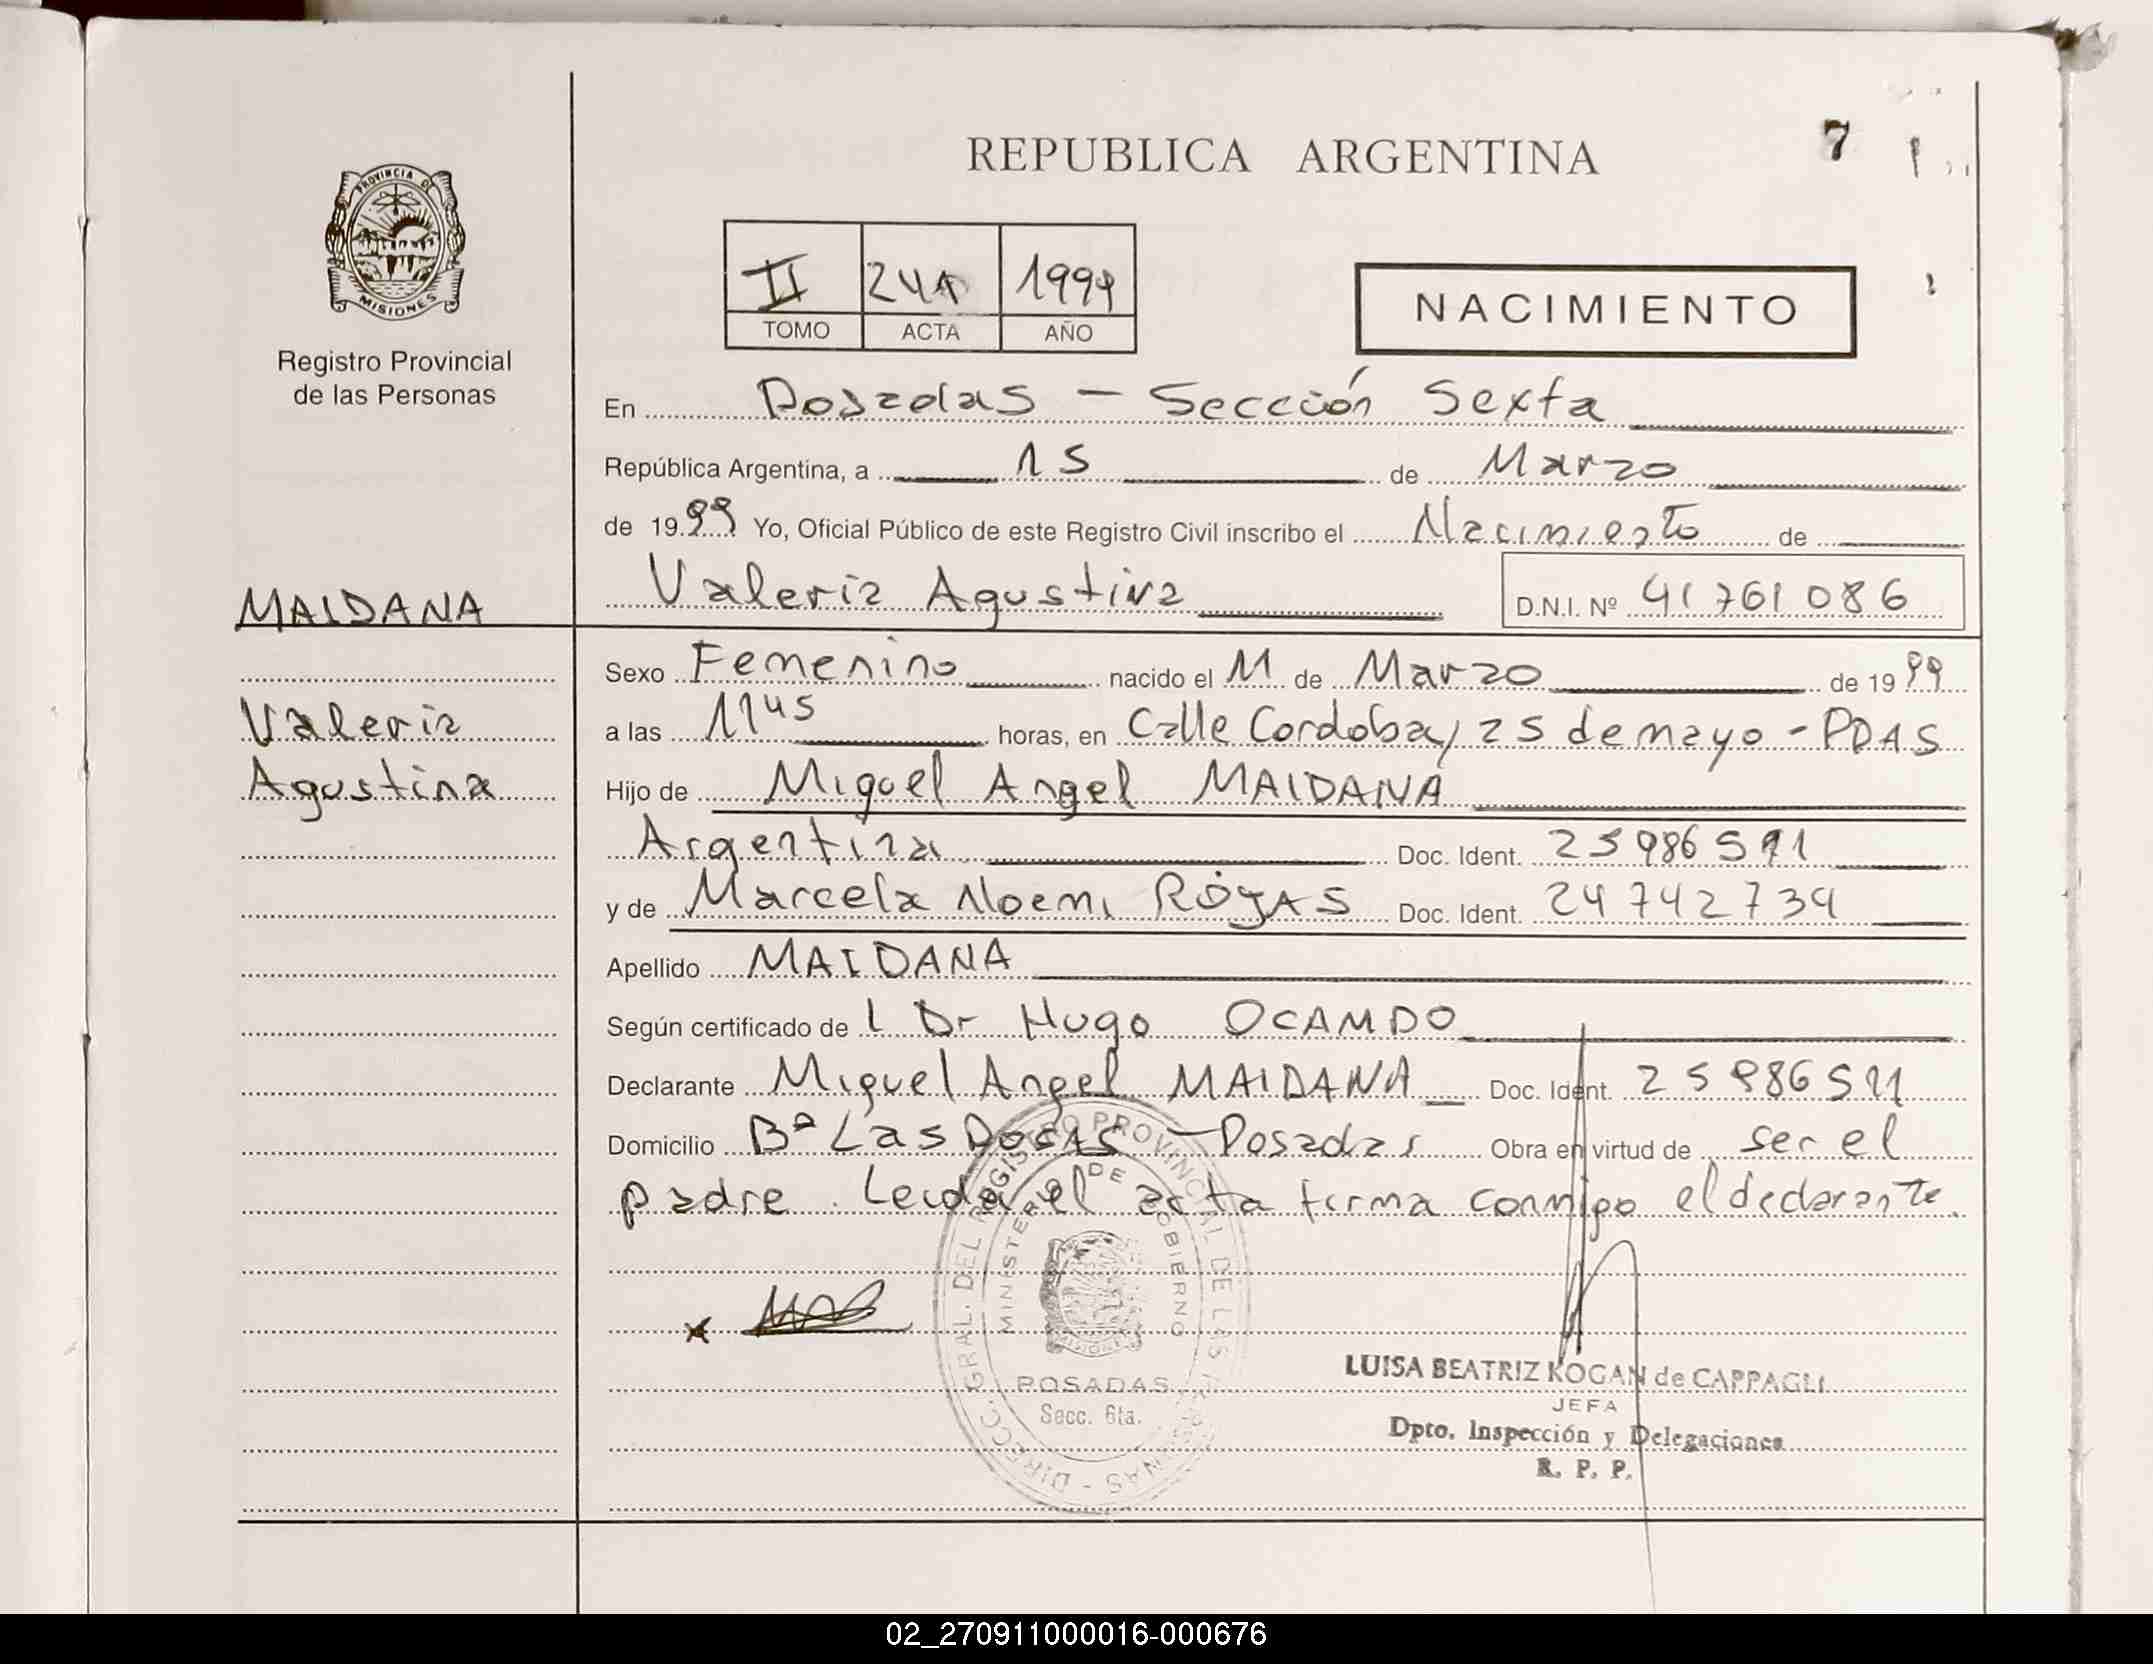 REPUBLICA ARGENTINA
7
PROVINCIA DE
MISIONES
Registro Provincial
de las Personas
II 241 1999
TOMO ACTA AÑO
NACIMIENTO
En Posadas - Sección Sexta
República Argentina, a 15 de Marzo
de 1999 Yo, Oficial Público de este Registro Civil inscribo el Nacimiento de
MAIDANA
Valeria Agustina D.N.I. Nº 41761086
Sexo Femenino nacido el 11 de Marzo de 1999
Valeria
a las 11 45 horas, en Calle Cordoba/25 de mayo - PDAS
Agustina
Hijo de Miguel Angel MAIDANA
Argentina Doc. Ident. 25986591
y de Marcela Noemi ROJAS Doc. Ident. 24742734
Apellido MAIDANA
Según certificado de l Dr Hugo OCAMPO
Declarante Miguel Angel MAIDANA Doc. Ident. 25986591
Domicilio Bº Las Rosas - Posadas Obra en virtud de ser el
padre. Leida el acta firma conmigo el declarante.
DIRECC. GRAL. DEL REGISTRO PROVINCIAL DE LAS PERSONAS
MINISTERIO DE GOBIERNO
POSADAS
Secc. 6ta.
LUISA BEATRIZ KOGAN de CAPPAGLI
JEFA
Dpto. Inspección y Delegaciones
R. P. P.
02_270911000016-000676